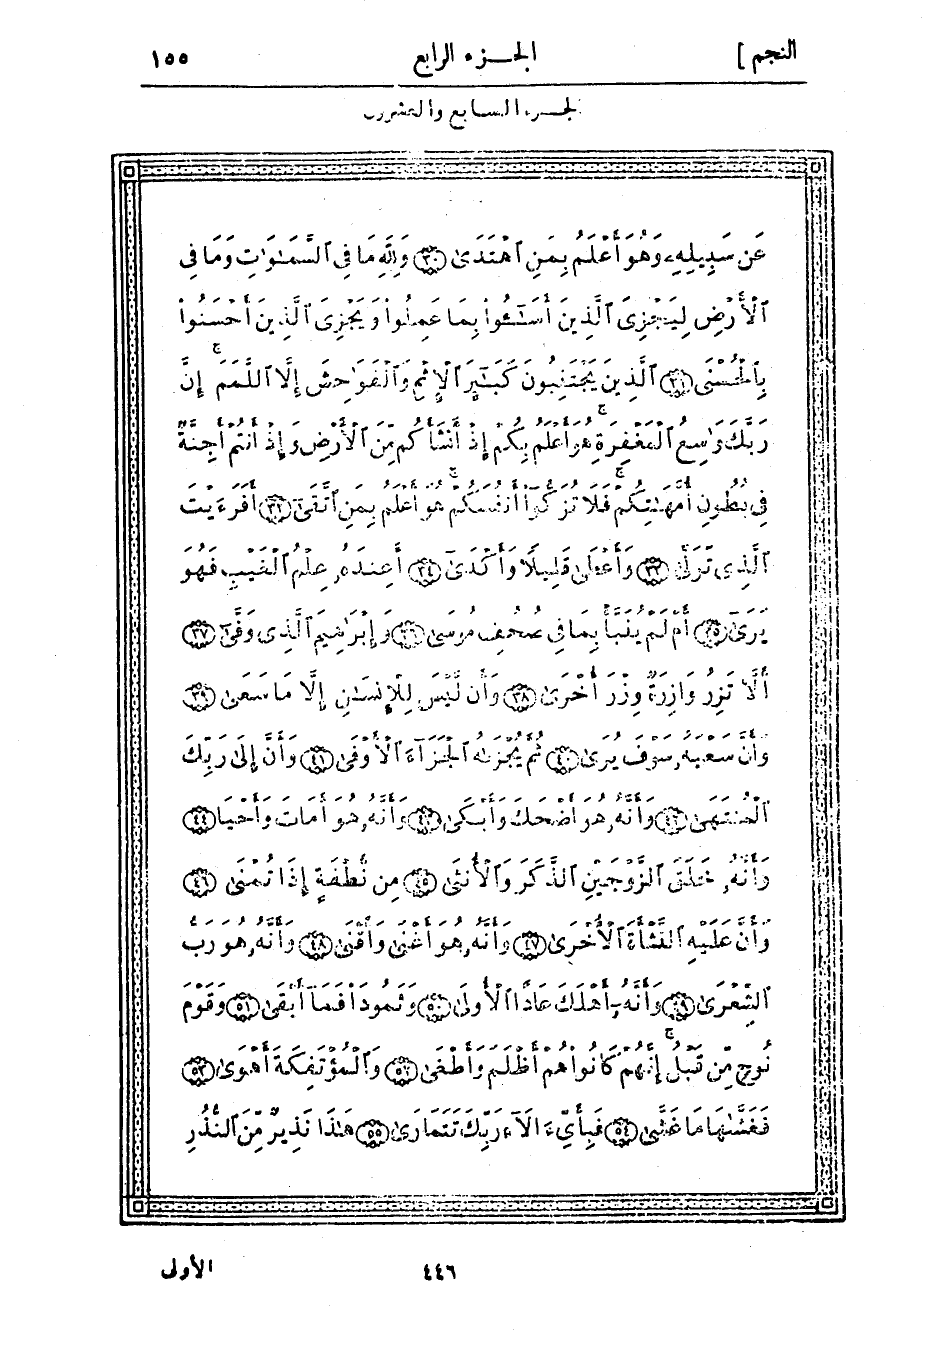 النجم ] الجزء الرابع ١٥٥
الجزء السابع والعشرون
عَن سَبِيلِهِۦ وَهُوَ أَعْلَمُ بِمَنِ ٱهْتَدَىٰ ﴿٣٠﴾ وَلِلَّهِ مَا فِى ٱلسَّمَـٰوَٰتِ وَمَا فِى
ٱلْأَرْضِ لِيَجْزِىَ ٱلَّذِينَ أَسَـٰٓـُٔوا۟ بِمَا عَمِلُوا۟ وَيَجْزِىَ ٱلَّذِينَ أَحْسَنُوا۟
بِٱلْحُسْنَى ﴿٣١﴾ ٱلَّذِينَ يَجْتَنِبُونَ كَبَـٰٓئِرَ ٱلْإِثْمِ وَٱلْفَوَٰحِشَ إِلَّا ٱللَّمَمَ ۚ إِنَّ
رَبَّكَ وَٰسِعُ ٱلْمَغْفِرَةِ ۚ هُوَ أَعْلَمُ بِكُمْ إِذْ أَنشَأَكُم مِّنَ ٱلْأَرْضِ وَإِذْ أَنتُمْ أَجِنَّةٌ
فِى بُطُونِ أُمَّهَـٰتِكُمْ ۖ فَلَا تُزَكُّوٓا۟ أَنفُسَكُمْ ۖ هُوَ أَعْلَمُ بِمَنِ ٱتَّقَىٰٓ ﴿٣٢﴾ أَفَرَءَيْتَ
ٱلَّذِى تَوَلَّىٰ ﴿٣٣﴾ وَأَعْطَىٰ قَلِيلًا وَأَكْدَىٰٓ ﴿٣٤﴾ أَعِندَهُۥ عِلْمُ ٱلْغَيْبِ فَهُوَ
يَرَىٰٓ ﴿٣٥﴾ أَمْ لَمْ يُنَبَّأْ بِمَا فِى صُحُفِ مُوسَىٰ ﴿٣٦﴾ وَإِبْرَٰهِيمَ ٱلَّذِى وَفَّىٰٓ ﴿٣٧﴾
أَلَّا تَزِرُ وَازِرَةٌ وِزْرَ أُخْرَىٰ ﴿٣٨﴾ وَأَن لَّيْسَ لِلْإِنسَـٰنِ إِلَّا مَا سَعَىٰ ﴿٣٩﴾
وَأَنَّ سَعْيَهُۥ سَوْفَ يُرَىٰ ﴿٤٠﴾ ثُمَّ يُجْزَىٰهُ ٱلْجَزَآءَ ٱلْأَوْفَىٰ ﴿٤١﴾ وَأَنَّ إِلَىٰ رَبِّكَ
ٱلْمُنتَهَىٰ ﴿٤٢﴾ وَأَنَّهُۥ هُوَ أَضْحَكَ وَأَبْكَىٰ ﴿٤٣﴾ وَأَنَّهُۥ هُوَ أَمَاتَ وَأَحْيَا ﴿٤٤﴾
وَأَنَّهُۥ خَلَقَ ٱلزَّوْجَيْنِ ٱلذَّكَرَ وَٱلْأُنثَىٰ ﴿٤٥﴾ مِن نُّطْفَةٍ إِذَا تُمْنَىٰ ﴿٤٦﴾
وَأَنَّ عَلَيْهِ ٱلنَّشْأَةَ ٱلْأُخْرَىٰ ﴿٤٧﴾ وَأَنَّهُۥ هُوَ أَغْنَىٰ وَأَقْنَىٰ ﴿٤٨﴾ وَأَنَّهُۥ هُوَ رَبُّ
ٱلشِّعْرَىٰ ﴿٤٩﴾ وَأَنَّهُۥٓ أَهْلَكَ عَادًا ٱلْأُولَىٰ ﴿٥٠﴾ وَثَمُودَا۟ فَمَآ أَبْقَىٰ ﴿٥١﴾ وَقَوْمَ
نُوحٍ مِّن قَبْلُ ۖ إِنَّهُمْ كَانُوا۟ هُمْ أَظْلَمَ وَأَطْغَىٰ ﴿٥٢﴾ وَٱلْمُؤْتَفِكَةَ أَهْوَىٰ ﴿٥٣﴾
فَغَشَّىٰهَا مَا غَشَّىٰ ﴿٥٤﴾ فَبِأَىِّ ءَالَآءِ رَبِّكَ تَتَمَارَىٰ ﴿٥٥﴾ هَـٰذَا نَذِيرٌ مِّنَ ٱلنُّذُرِ
الأولى
٤٤٦